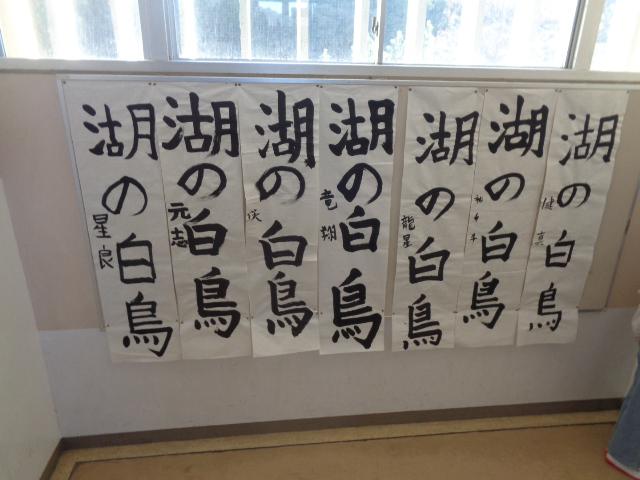 湖の白鳥
健真
湖の白鳥
湖の白鳥
龍星
湖の白鳥
竜翔
湖の白鳥
湖の白鳥
元志
湖の白鳥
星良